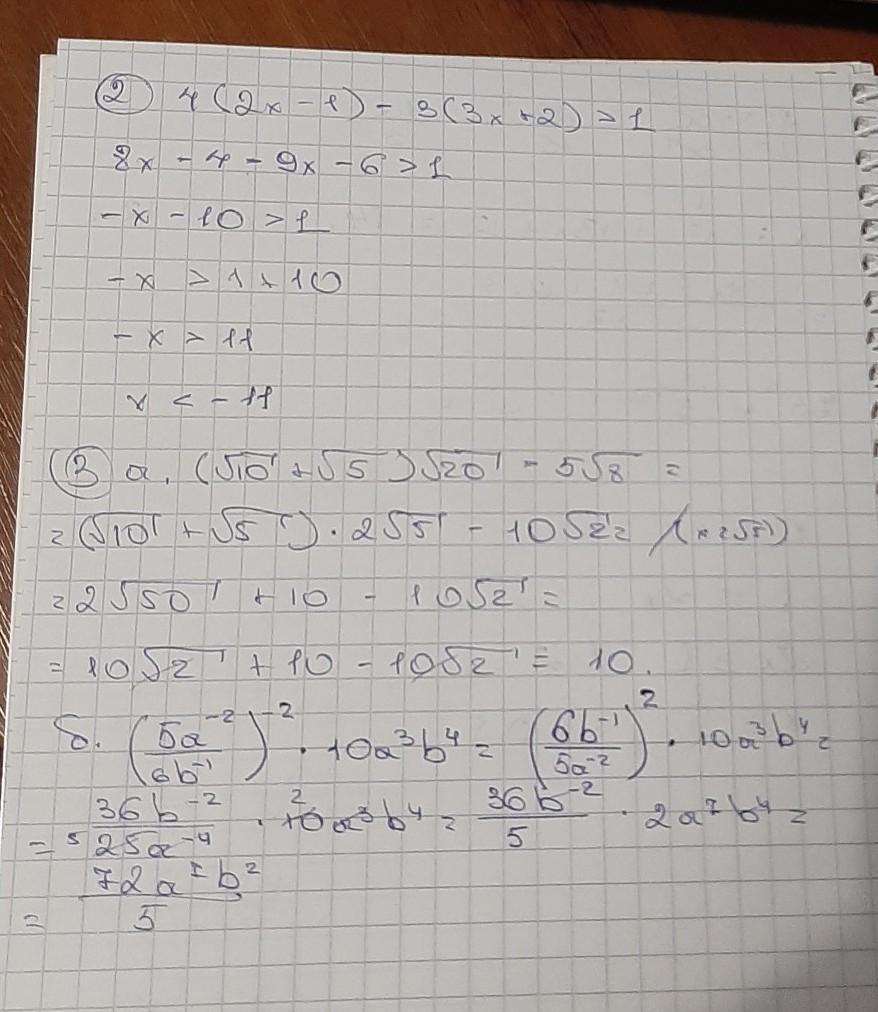 ② 4(2x - 1) - 3(3x + 2) > 1
8x - 4 - 9x - 6 > 1
-x - 10 > 1
-x > 1 + 10
-x > 11
x < -11
③ а. (√10 + √5)√20 - 5√8 =
= (√10 + √5) · 2√5 - 10√2 =
= 2√50 + 10 - 10√2 =
= 10√2 + 10 - 10√2 = 10.
б. (5a⁻²/6b⁻¹)⁻² · 10a³b⁴ = (6b⁻¹/5a⁻²)² · 10a³b⁴ =
= 36b⁻²/25a⁻⁴ 5 · 10 2 a³b⁴ = 36b⁻²/5 · 2a⁷b⁴ =
= 72a⁷b²/5